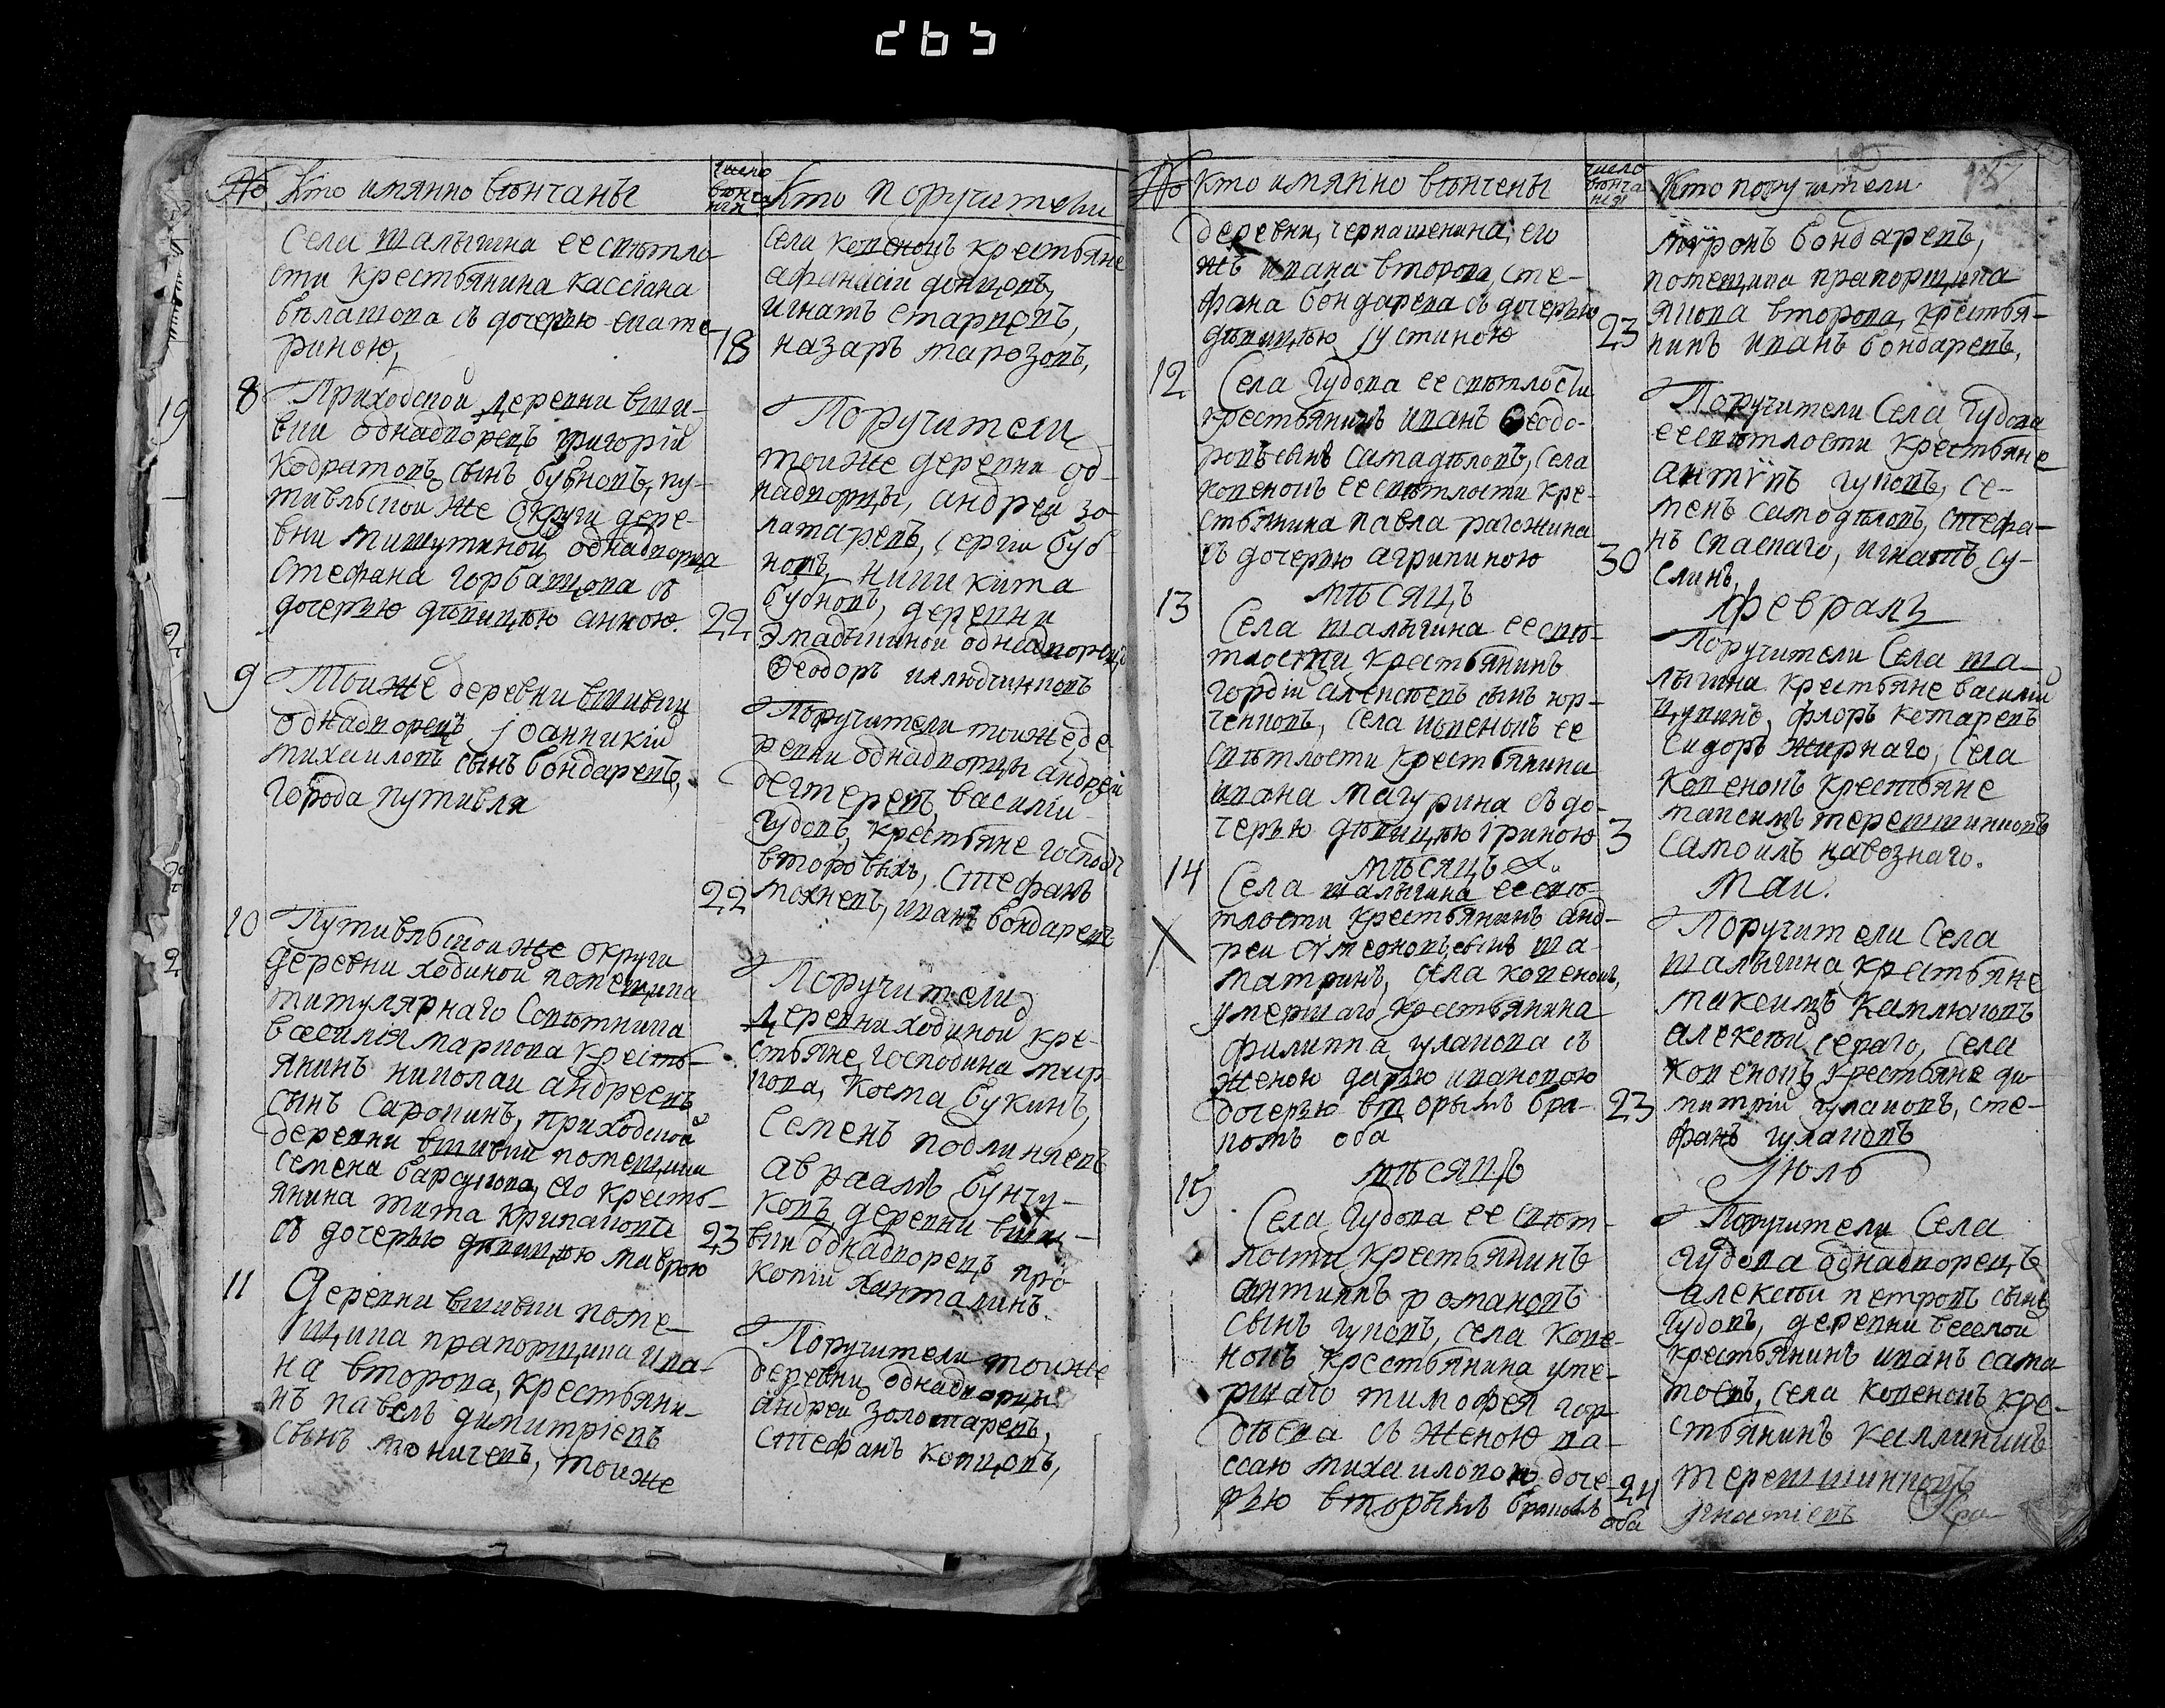 265
№ Кто имянно вѣнчаны
число вѣнча нія
Кто поручители
села шалыгина ее свѣтло-
сти крестьянина кассіана
бѣлашова съ дочерью екате
риною,
18
села копенокъ крестьяне
афанасіи донцовъ,
игнатъ старцовъ,
назаръ марозовъ,
8 Приходской деревни вши-
вки однадворецъ григорій
кодратовъ сынъ бубновъ, пу-
тивльской же округи дере-
вни мишутиной однадворца
стефана горбацова съ
дочерью дѣвицою анною.
22
Поручители
тоиже деревни од-
надворцы, андреи зо
латаревъ, сергіи буб
новъ, никита
бубновъ, деревни
однадворецъ
Ѳеодоръ
9 Тоиже деревни вшивки
однадворецъ іоанникіи
михаиловъ сынъ бондаревъ,
города путивля
22
Поручители тоиже де
ревни однадворцы андреи
дегтеревъ, василіи
гудовъ, крестьяне господъ
второвыхъ, Стефанъ
махневъ, иванъ бондаревъ
10 Путивльскои же округи
деревни ходиной помещика
титулярнаго Совѣтника
василія маркова кресть-
янинъ николаи андреевъ
сынъ Саропинъ, приходской
деревни вшивки помещика
семена варсукова, его кресть-
янина тита
съ дочерью дѣвицею маврою
23
Поручители
Деревни ходиной кре-
стьяне господина мар
кова, Косма букинъ,
Семенъ подлиняевъ
авраамъ бунчу-
ковъ, деревни вши-
вки однадворецъ про
копіи ханталинъ.
11 Деревни вшивки поме-
щика прапорщика ива-
на второва, крестьяни-
нъ павелъ димитріевъ
сынъ тоничевъ, тоиже
Поручители тоиже
деревни однадворцы
андреи золотаревъ,
Стефанъ копцовъ,
№ Кто имянно вѣнчены
число вѣнча нія
Кто поручители
деревни, черкашенина, его
жъ ивана второва, сте-
фана бондарева съ дочерью
дѣвицею іустиною
23
мѵронъ бондаревъ,
помещика прапорщика
якова второва, крестья-
нинъ иванъ бондаревъ,
12 Села Гудова ее свѣтлости
крестьянинъ иванъ Ѳеодо-
ровъ сынъ самадѣловъ, села
копенокъ ее свѣтлости кре-
стьянина павла рагожина
съ дочерью агрипиною
30
Поручители Села Гудова
ее свѣтлости крестьяне
антѵпъ гуковъ, се-
менъ самодѣловъ, стефа-
нъ спаскаго, игнатъ су-
слинъ,
мѣсяцъ
февраль
13 Села шалыгина ее свѣ-
тлости крестьянинъ
гордіи алексѣевъ сынъ юр-
ченковъ, села копенокъ ее
свѣтлости крестьянина
ивана магурина съ до-
черью дѣвицею ириною
3
Поручители Села ша-
лыгина крестьяне василіи
цупинъ, флоръ котаревъ
сидоръ жирнаго, села
копенокъ крестьяне
максимъ терешшинковъ
самоилъ навознаго.
мѣсяцъ
Маи.
14 Села шалыгина ее свѣ-
тлости крестьянинъ анд-
реи сѵмеоновъ сынъ ша-
матринъ, села копенокъ,
умершаго крестьянина
филиппа гулакова съ
женою дарью ивановою
дочерью вторымъ бра-
комъ оба
23
Поручители Села
шалыгина крестьяне
максимъ камлюковъ
алексѣи сераго, села
копенокъ крестьяне ди-
митріи гулаковъ, сте-
фанъ гулаковъ
мѣсяцъ
Іюль
15 Села Гудова ее свѣт-
лости крестьянинъ
антиппъ романовъ
сынъ гуковъ, села копе-
нокъ крестьянина уме-
ршаго тимофея гор-
дѣева съ женою ва-
ссаю михаиловою доче-
рью вторымъ бракомъ
24
оба
Поручители Села
гудова однадворецъ
алексѣи петровъ сынъ
гудовъ, деревни веселой
крестьянинъ иванъ сама
тоевъ, села копенокъ кре-
стьянинъ каллиникъ
терешшинковъ
игнатіевъ